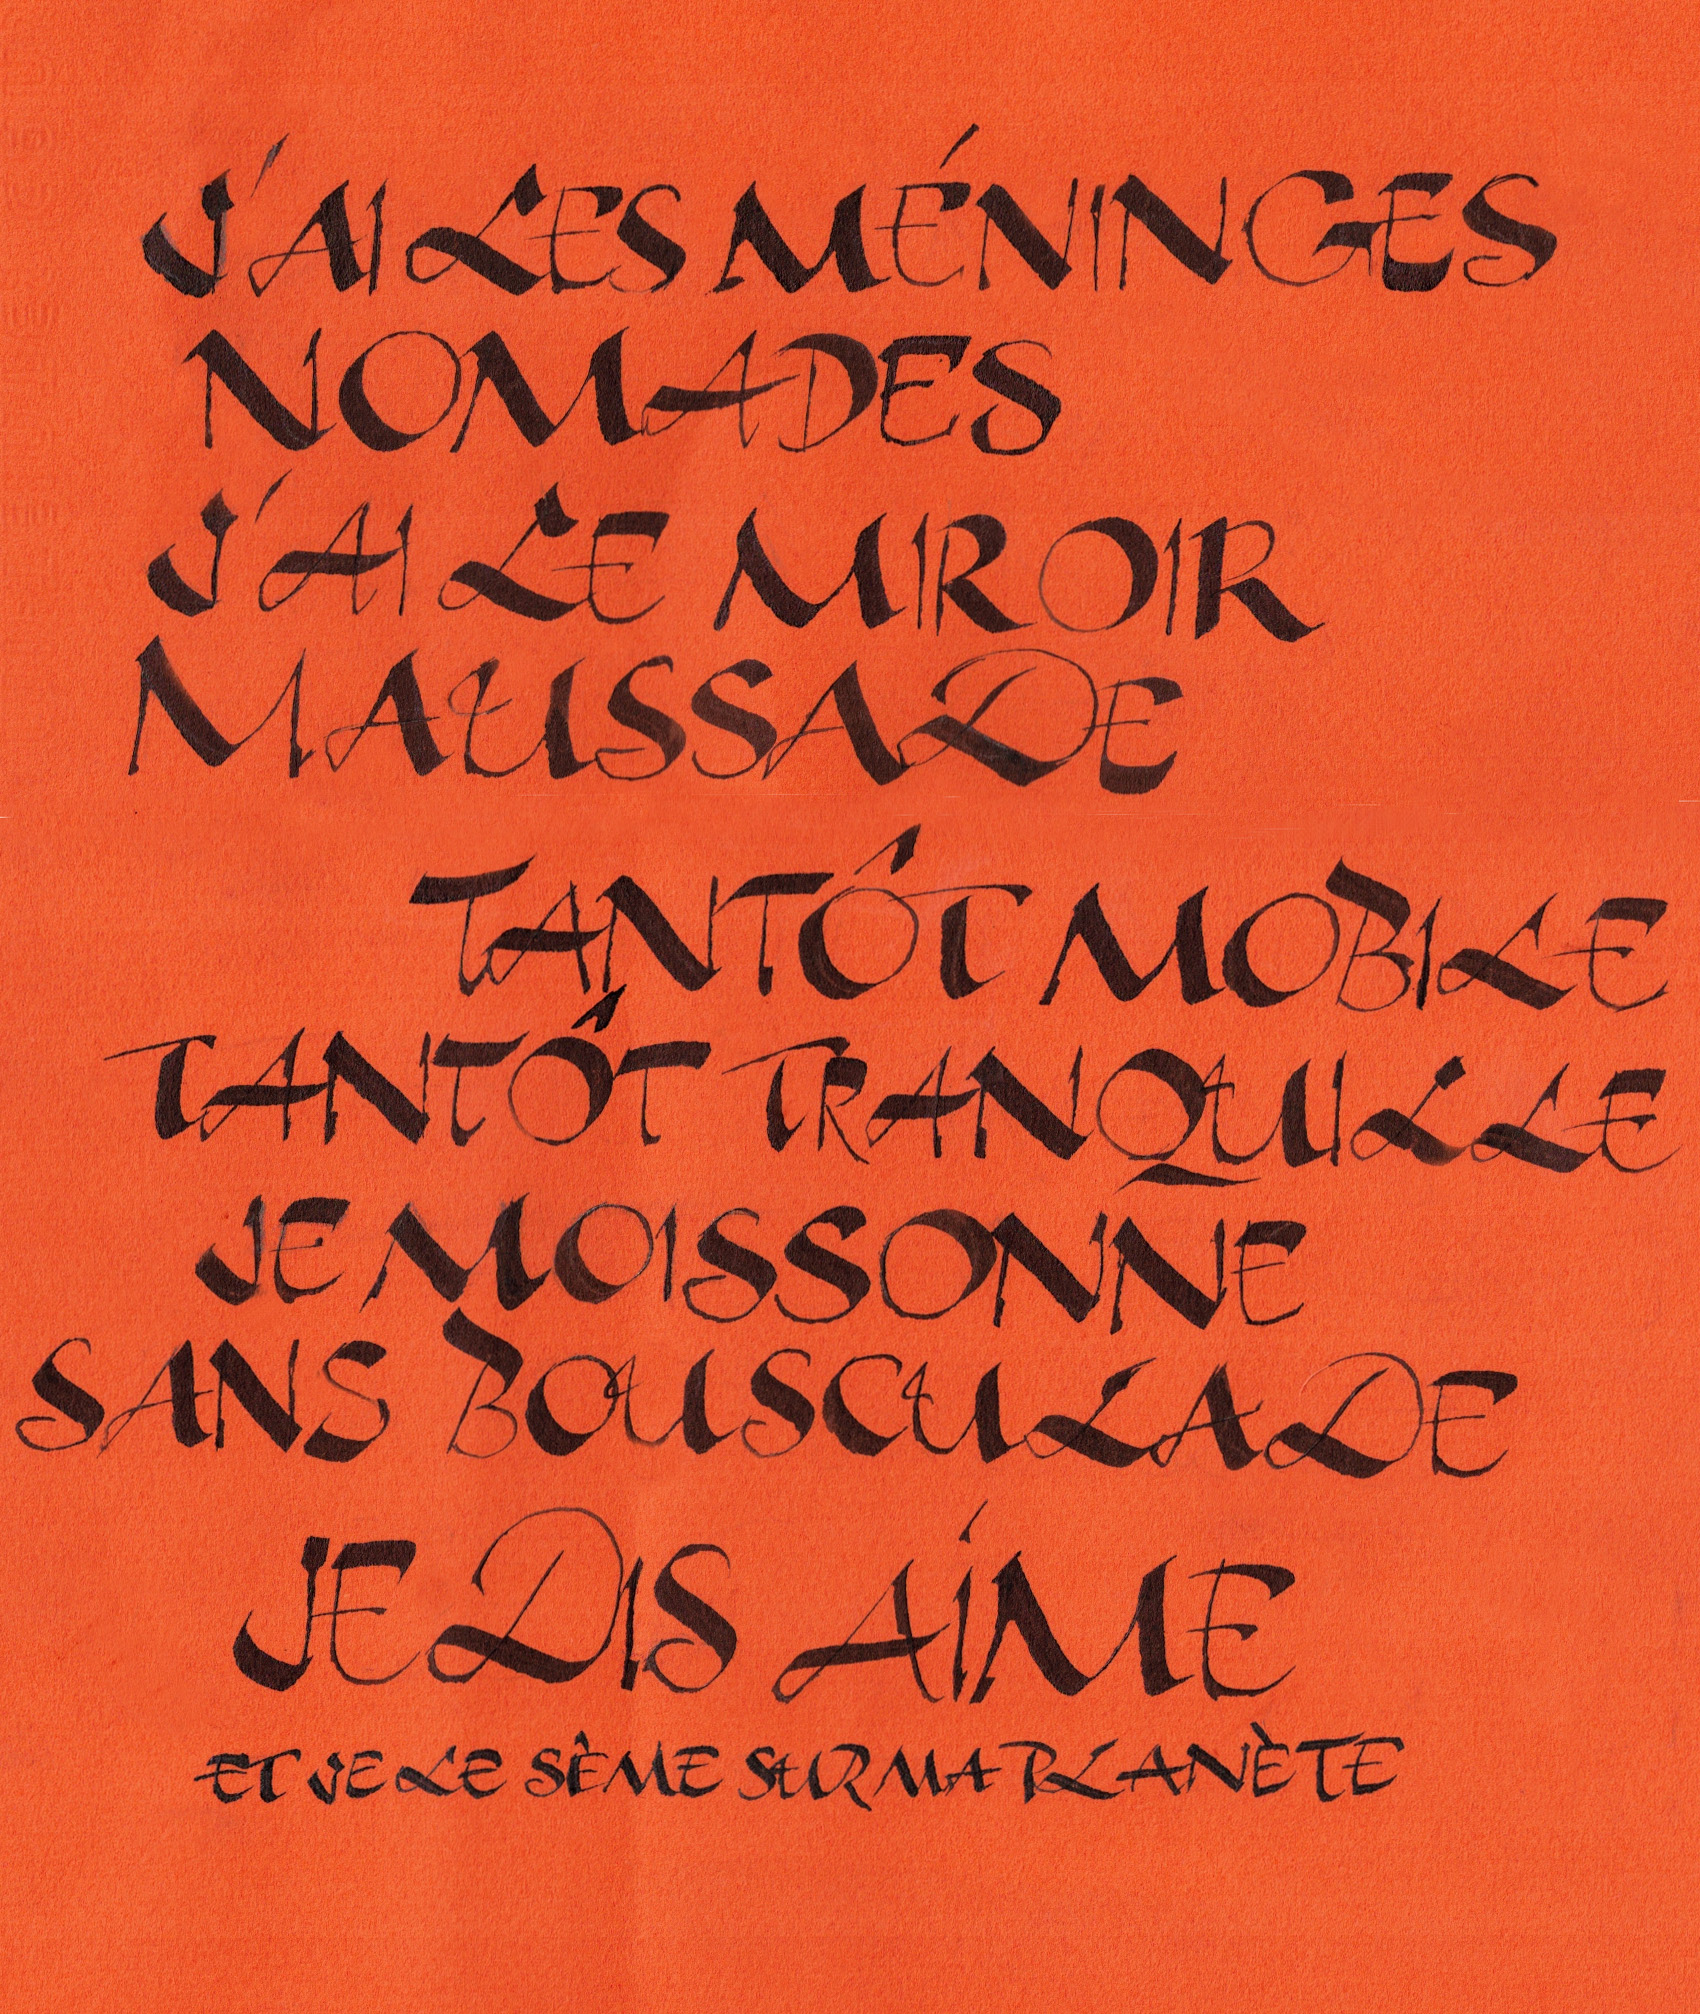 J'AI LES MÉNINGES
NOMADES
J'AI LE MIROIR
MAUSSADE
TANTÔT MOBILE
TANTÔT TRANQUILLE
JE MOISSONNE
SANS BOUSCULADE
JE DIS AIME
ET JE LE SÈME SUR MA PLANÈTE